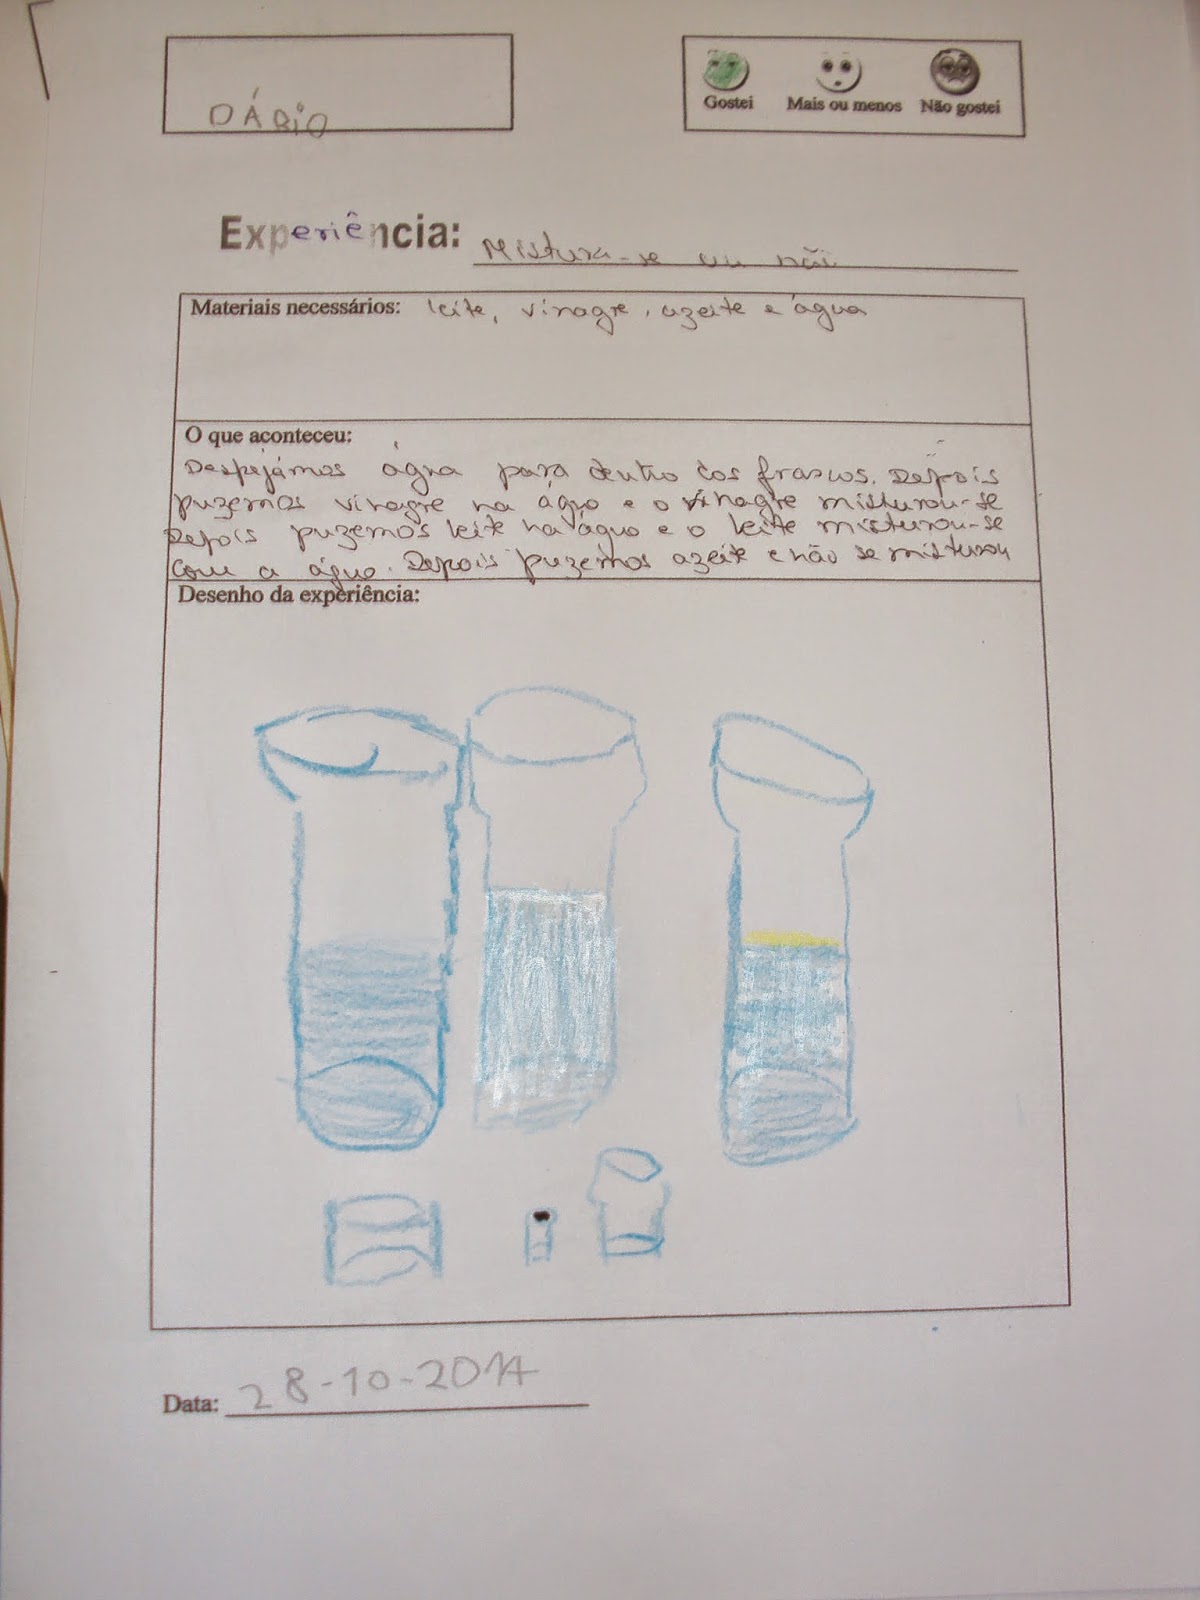 DÁRIO
Gostei Mais ou menos Não gostei
Experiência: Mistura-se ou não
Materiais necessários: leite, vinagre, azeite e água
O que aconteceu:
Despejámos água para dentro dos frascos. Depois
puzemos vinagre na água e o vinagre misturou-se
Depois puzemos leite na água e o leite misturou-se
com a água. Depois puzemos azeite e não se misturou
Desenho da experiência:
Data: 28-10-2014